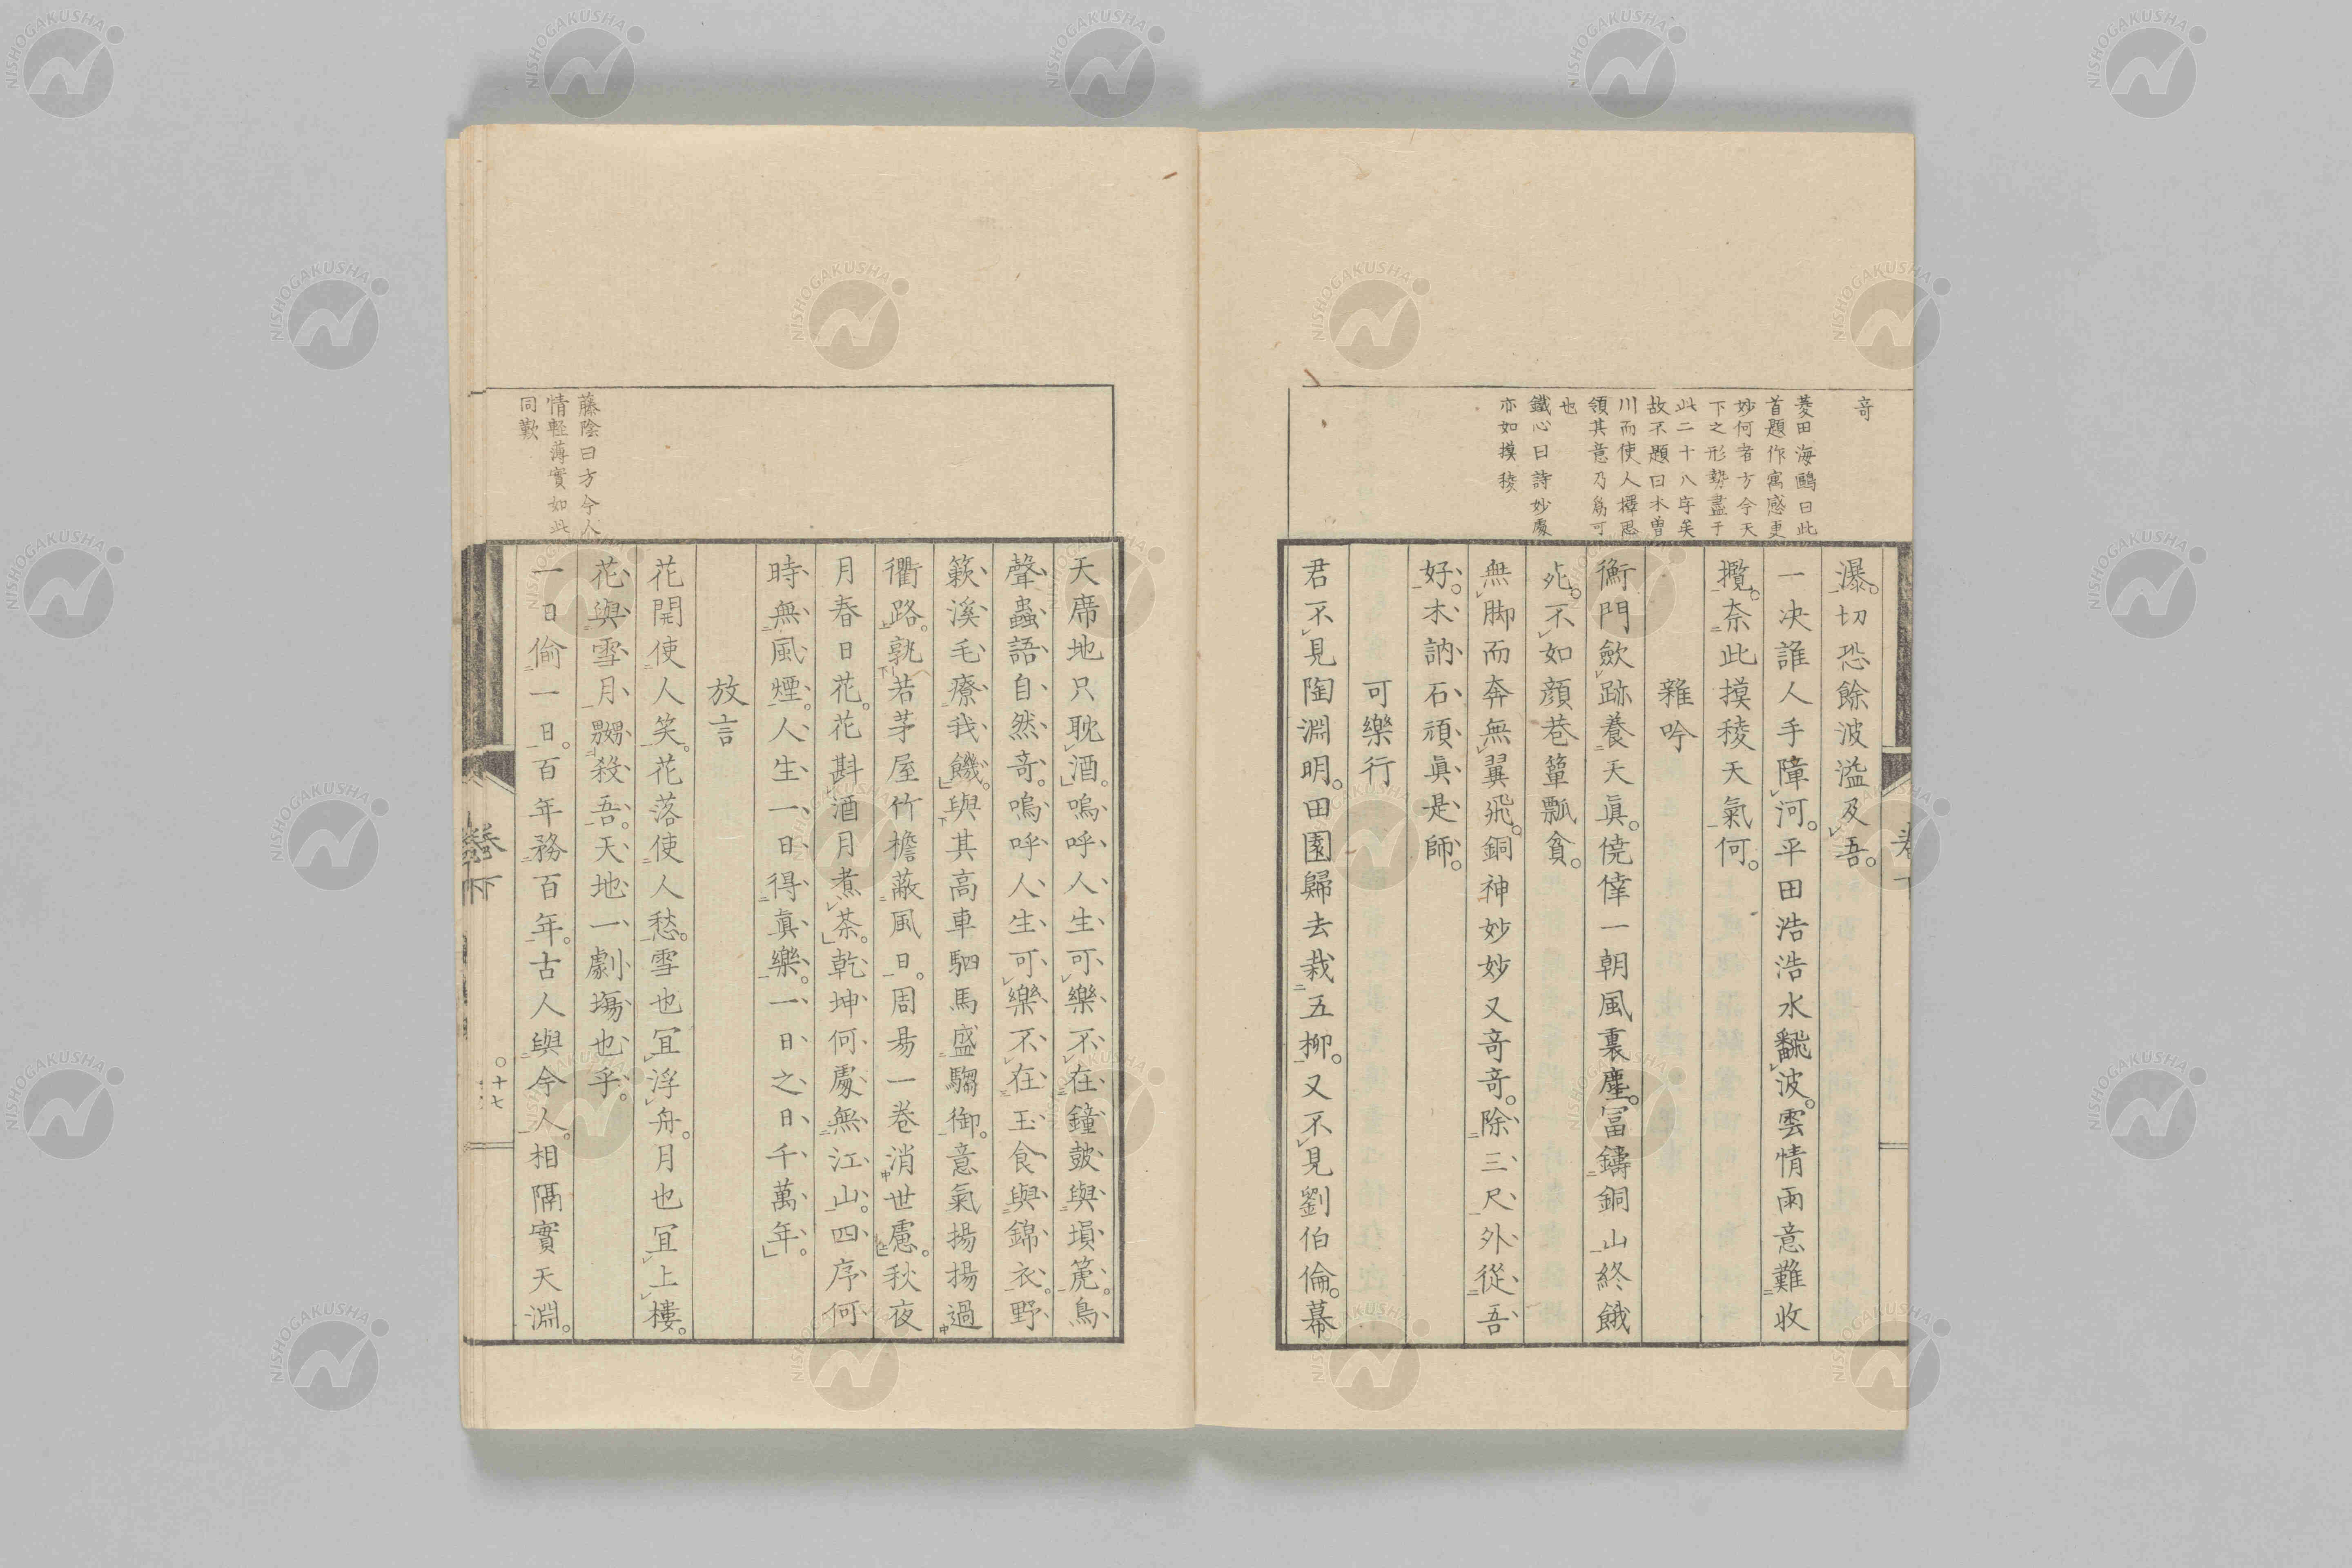 奇
菱田海鷗曰此
首題作寓感更
妙何者方今天
下之形勢盡于
此二十八字矣
故不題曰木曽
川而使人擇思
領其意乃爲可
也
鐵心曰詩妙處
亦如摸稜
瀑切恐餘波溢及吾
一决誰人手障河平田浩浩水飜波雲情雨意難收
攬奈此摸稜天氣何
雜吟
衡門歛跡養天眞僥倖一朝風裏塵冨鑄銅山終餓
死不如顔巷簞瓢貧
無脚而奔無翼飛銅神妙妙又奇奇除三尺外從吾
好木訥石頑眞是師
可樂行
君不見陶淵明田園歸去栽五柳又不見劉伯倫幕
天席地只耽酒嗚呼人生可樂不在鐘皷與塤箎鳥
聲蟲語自然奇嗚呼人生可樂不在玉食與錦衣野
蔌溪毛療我饑與其高車駟馬盛騶御意氣揚揚過
衢路孰若茅屋竹檐蔽風日周易一巻消世慮秋夜
月春日花花斟酒月煮茶乾坤何處無江山四序何
時無風煙人生一日得眞樂一日之日千萬年
放言
花開使人笑花落使人愁雪也冝浮舟月也冝上樓
花與雪月嬲殺吾天地一劇塲也乎
一日偷一日百年務百年古人與今人相隔實天淵
藤陰曰方今人
情軽薄實如此
同歎
巻下
十七
NISHOGAKUSHA